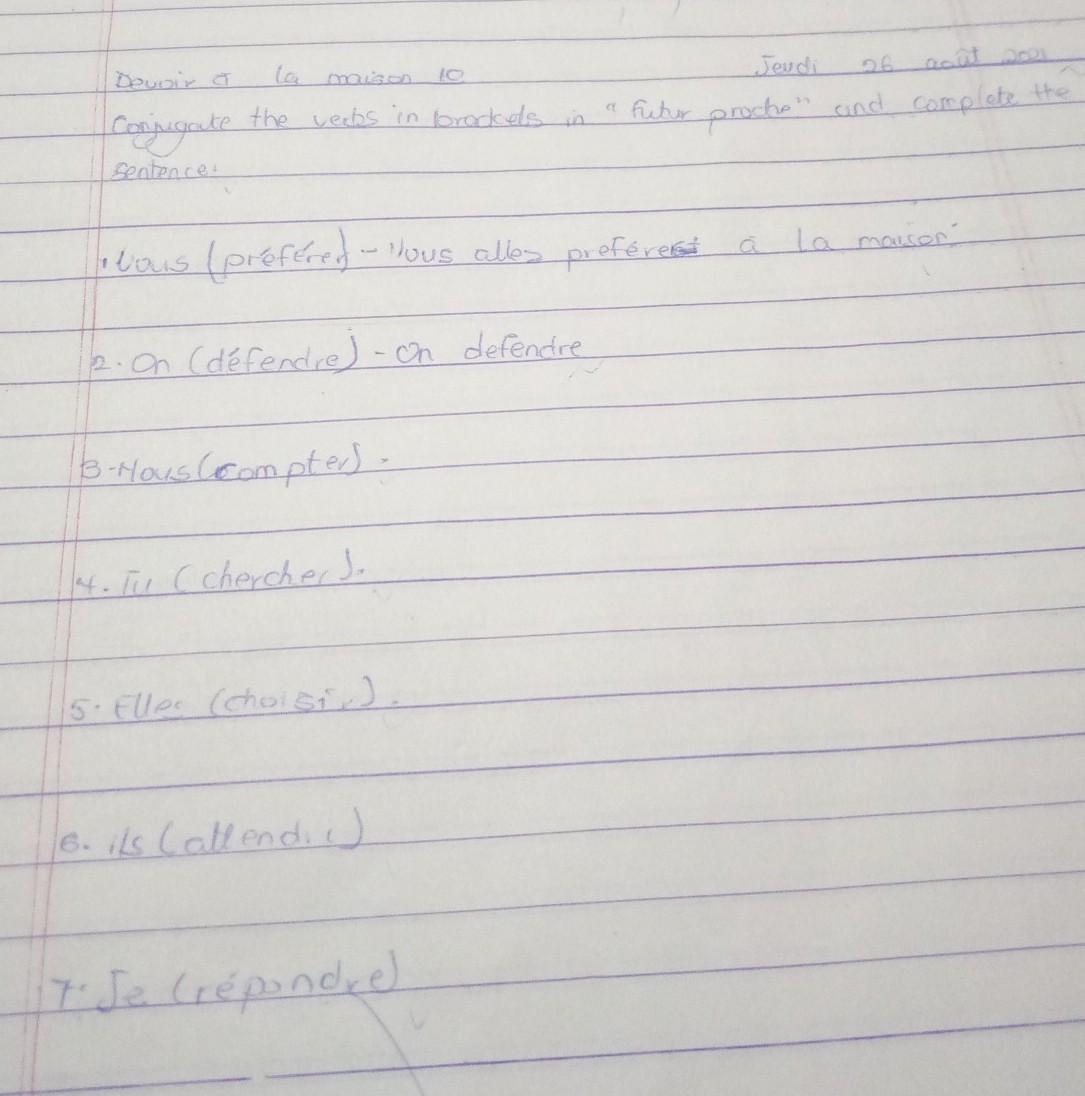 Devoir à la maison 10 Jeudi 26 août 2021
Conjugate the verbs in brackets in "futur proche" and complete the
sentence.
1. Vous (préférer) - Vous allez preférer à la maison.
2. On (défendre) - On defendre
3. Nous (compter).
4. Tu (chercher).
5. Elles (choisir).
6. ils (attendre)
7. Je (répondre)